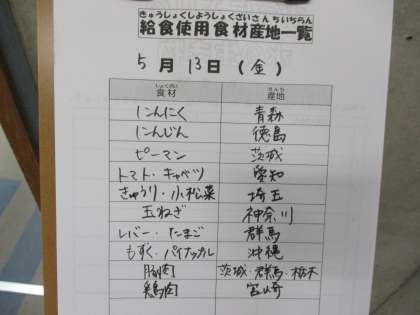 きゅうしょくしようしょくざいさんちいちらん
給食使用食材産地一覧
5月13日(金)
しょくざい さんち
食材 産地
にんにく 青森
にんじん 徳島
ピーマン 茨城
トマト・キャベツ 愛知
きゅうり・小松菜 埼玉
玉ねぎ 神奈川
レバー・たまご 群馬
もずく・パイナップル 沖縄
豚肉 茨城・群馬・栃木
鶏肉 宮崎